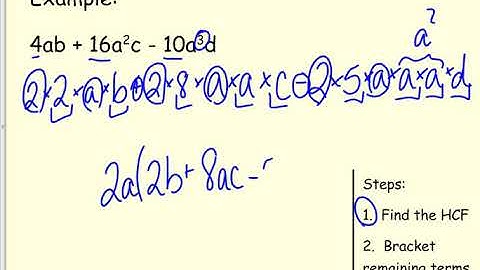 Example:
4ab + 16a²c - 10a³d
a²
2 × 2 × a × b + 2 × 8 × a × a × c - 2 × 5 × a × a × a × d
2a(2b + 8ac -
Steps:
1. Find the HCF
2. Bracket
remaining terms